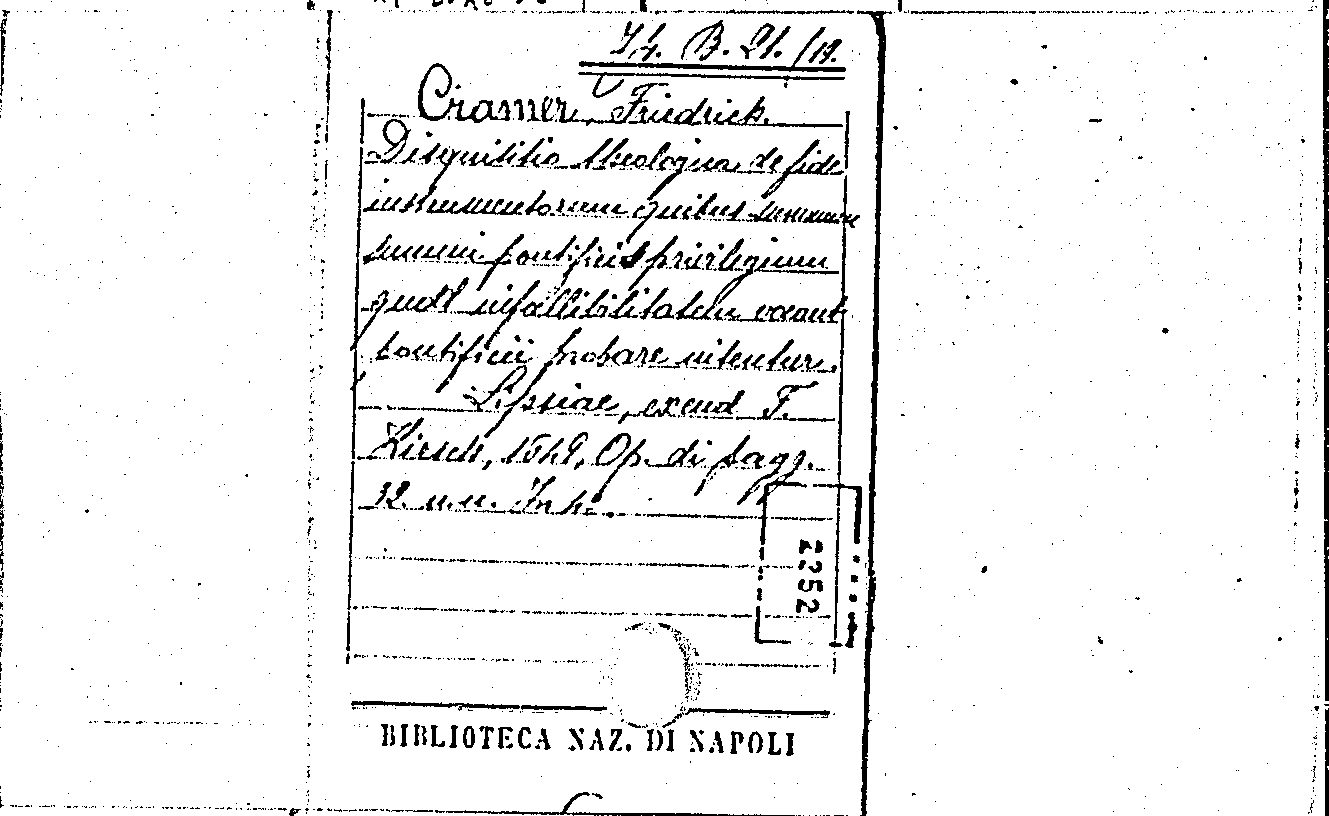 B. 21. /19.
Cramer, Friedrich.
Disquisitio theologica de fide
instrumentorum quibus
summi pontificis privilegium
quod infallibilitatem vocant
pontificii probare nituntur.
Lipsiae, excud F.
Hirsch, Op. di pagg.
32 n.n. In
2252
BIBLIOTECA NAZ. DI NAPOLI